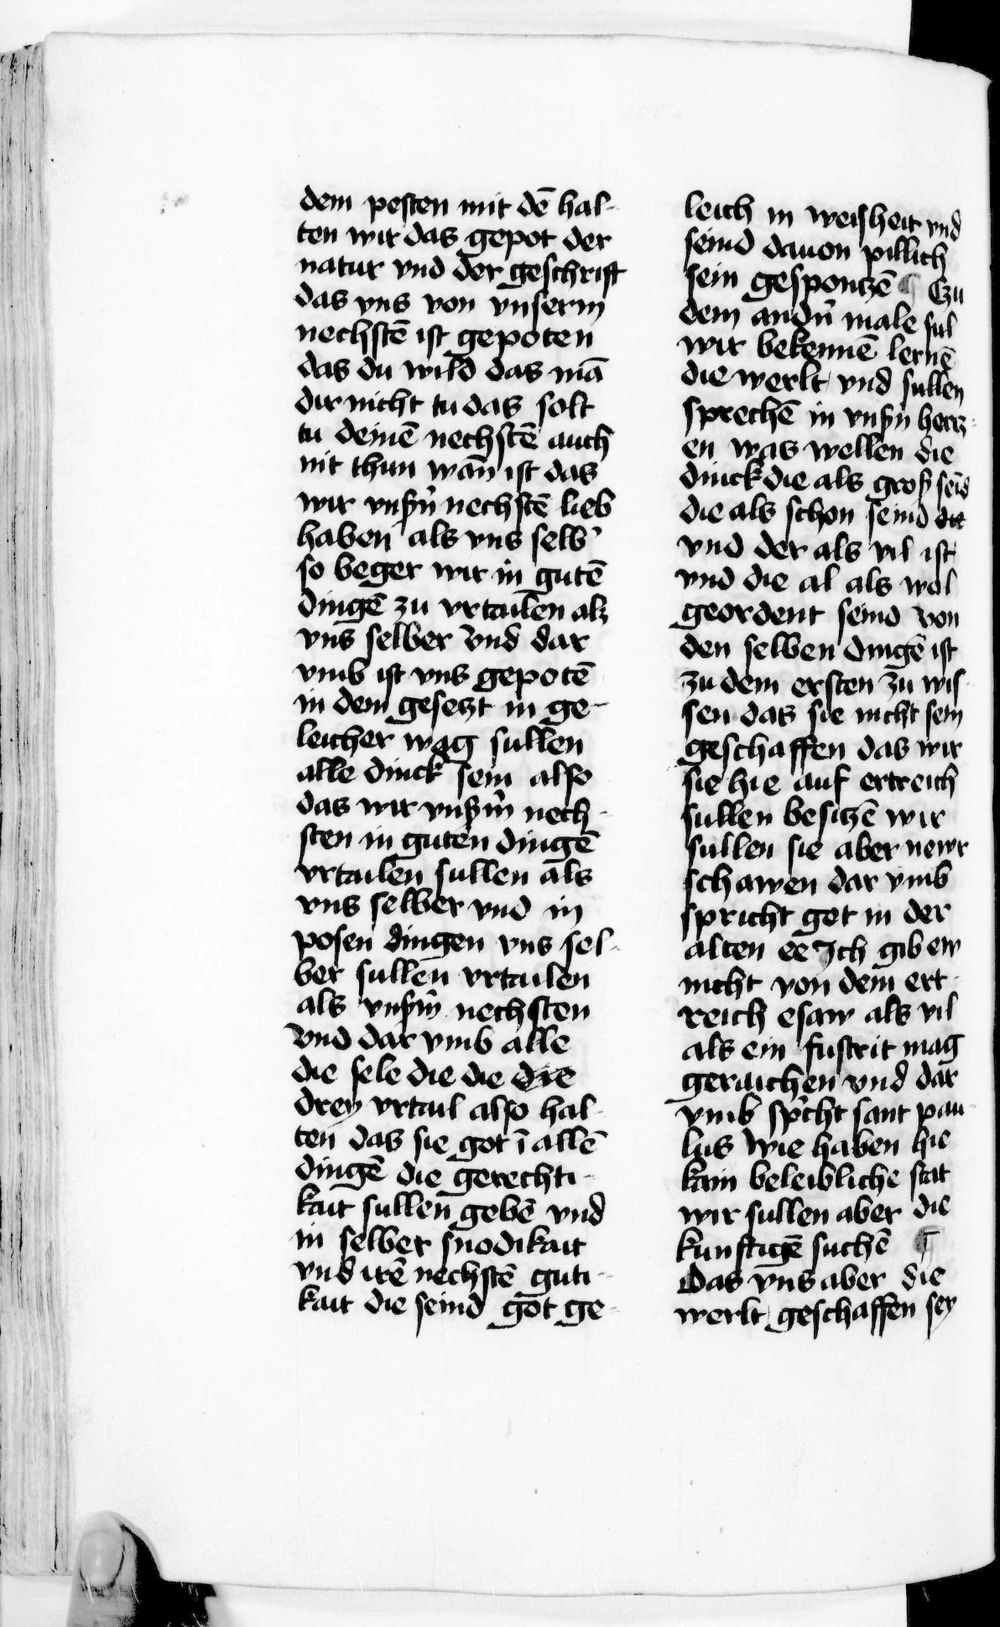 dem pesten mit dē hal-
ten wir das gepot der
natur vnd der geschrift
das vns von vnserm
nechstē ist gepoten
das du wild das mā
dir nicht tu das solt
tu deinē nechstē auch
nit thun wañ ist das
wir vnsern̄ nechstē lieb
haben als vns selb'
so beger wir in gutē
dingē zu vrtailen alz
vns selber Vnd dar
vmb ist vns gepotē
in dem gesetzt in ge-
leicher wag sullen
alle dinck sein also
das wir vnserm̄ nech-
sten in guten dingē
vrtailen sullen als
vns selber vnd in
posen dingen vns sel-
ber sullen vrtailen
als vnserm̄ nechsten
Vnd dar vmb alle
die sele die die die
drey vrtail also hal-
ten das sie got ī allē
dingē die gerechti-
kait sullen gebē vnd
in selber snodikait
vnd irē nechstē guti-
kait die seind got ge-
leich in weisheit vnd
seind dauon pillich
sein gespontzē ¶ Czu
dem andn̄ male sul
wir bekennē lernē
die werlt vnd sullen
sprechē in vnsn̄ hertz-
en was wellen die
dinck die als groß seīd
die als schon seind
vnd der als vil ist
vnd die al als wol
geordent seind von
den selben dingē ist
zu dem ersten zu wis-
sen das sie nicht sein
geschaffen das wir
sie hie auf ertreich
sullen besitzē wir
sullen sie aber newr
schawen dar vmb
spricht got in der
alten ee Ich gib ew
nicht von dem ert-
reich esaw als vil
als ein fustrit mag
geraichen vnd dar
vmb sp'cht sant pau-
lus Wie haben hie
kain beleibliche stat
wir sullen aber die
kunftigē suchē ¶
Das vns aber die
werlt geschaffen sey